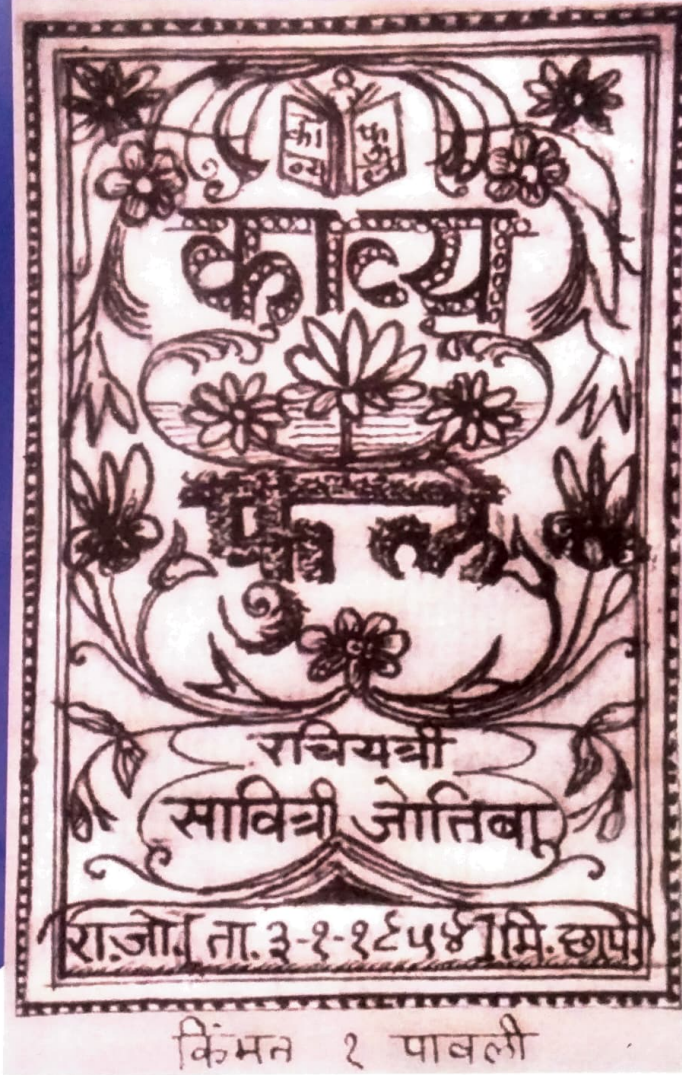 का फु
व्य ल
काव्य
फुल
रचियत्री
सावित्री जोतिबा
रा.जो.[ ता. ३-१-१८५४ ] मि. छापे.
किंमत १ पावली